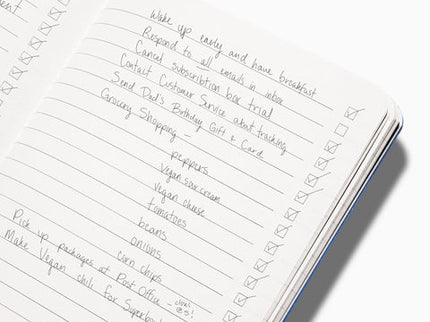 Wake up early and have breakfast
Respond to all emails in inbox
Cancel subscription box trial
Contact Customer Service about tracking
Send Dad's Birthday Gift & Card
Grocery Shopping –
peppers
vegan sour cream
vegan cheese
tomatoes
beans
onions
corn chips
Pick up packages at Post Office –
@5!
Make Vegan chili for Superbowl